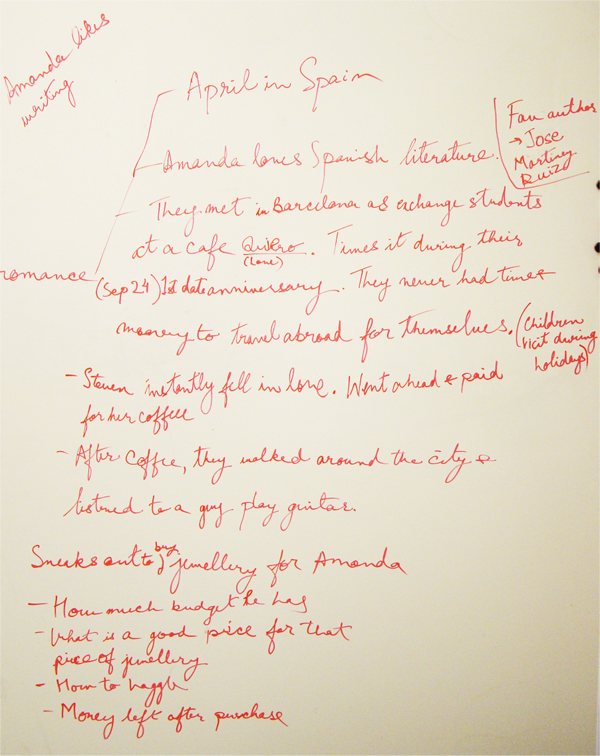 Amanda likes
writing
April in Spain
- Amanda loves Spanish literature.
Fav author
→ Jose
Martinez
Ruiz
- They met in Barcelona as exchange students
at a cafe Quiero. Times it during their
(love)
romance
(Sep 24) 1st date anniversary. They never had time &
money to travel abroad for themselves. (Children
visit during
holidays)
- Steven instantly fell in love. Went ahead & paid
for her coffee
- After coffee, they walked around the city &
listened to a guy play guitar.
Sneaks out to buy jewellery for Amanda
- How much budget he has
- What is a good price for that
piece of jewellery
- How to haggle
- Money left after purchase